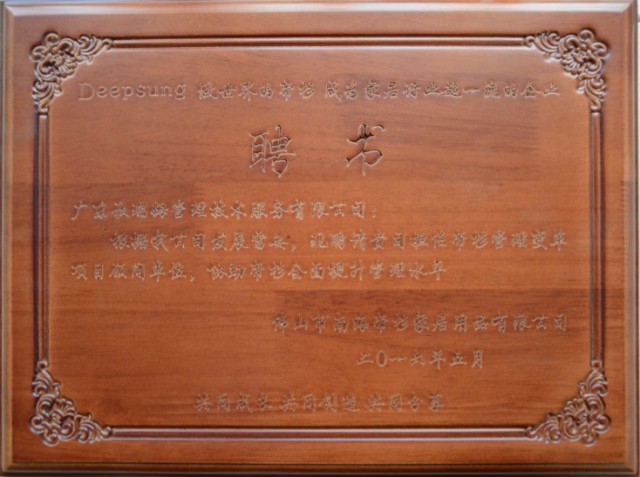 Deepsung 做世界的帝杉 成为家居行业超一流的企业
聘 书
广东 管理技术服务有限公司：
根据我公司发展需要，汇聘请贵司担任帝杉管理变革
项目顾问单位，协助帝杉全面提升管理水平
佛山市南海帝杉家居用品有限公司
二〇一六年五月
共同成长 共同创造 共同分享